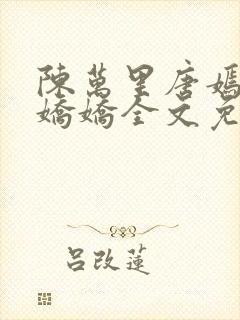 陳萬里唐嫣
嬌嬌全文免
呂改蓮